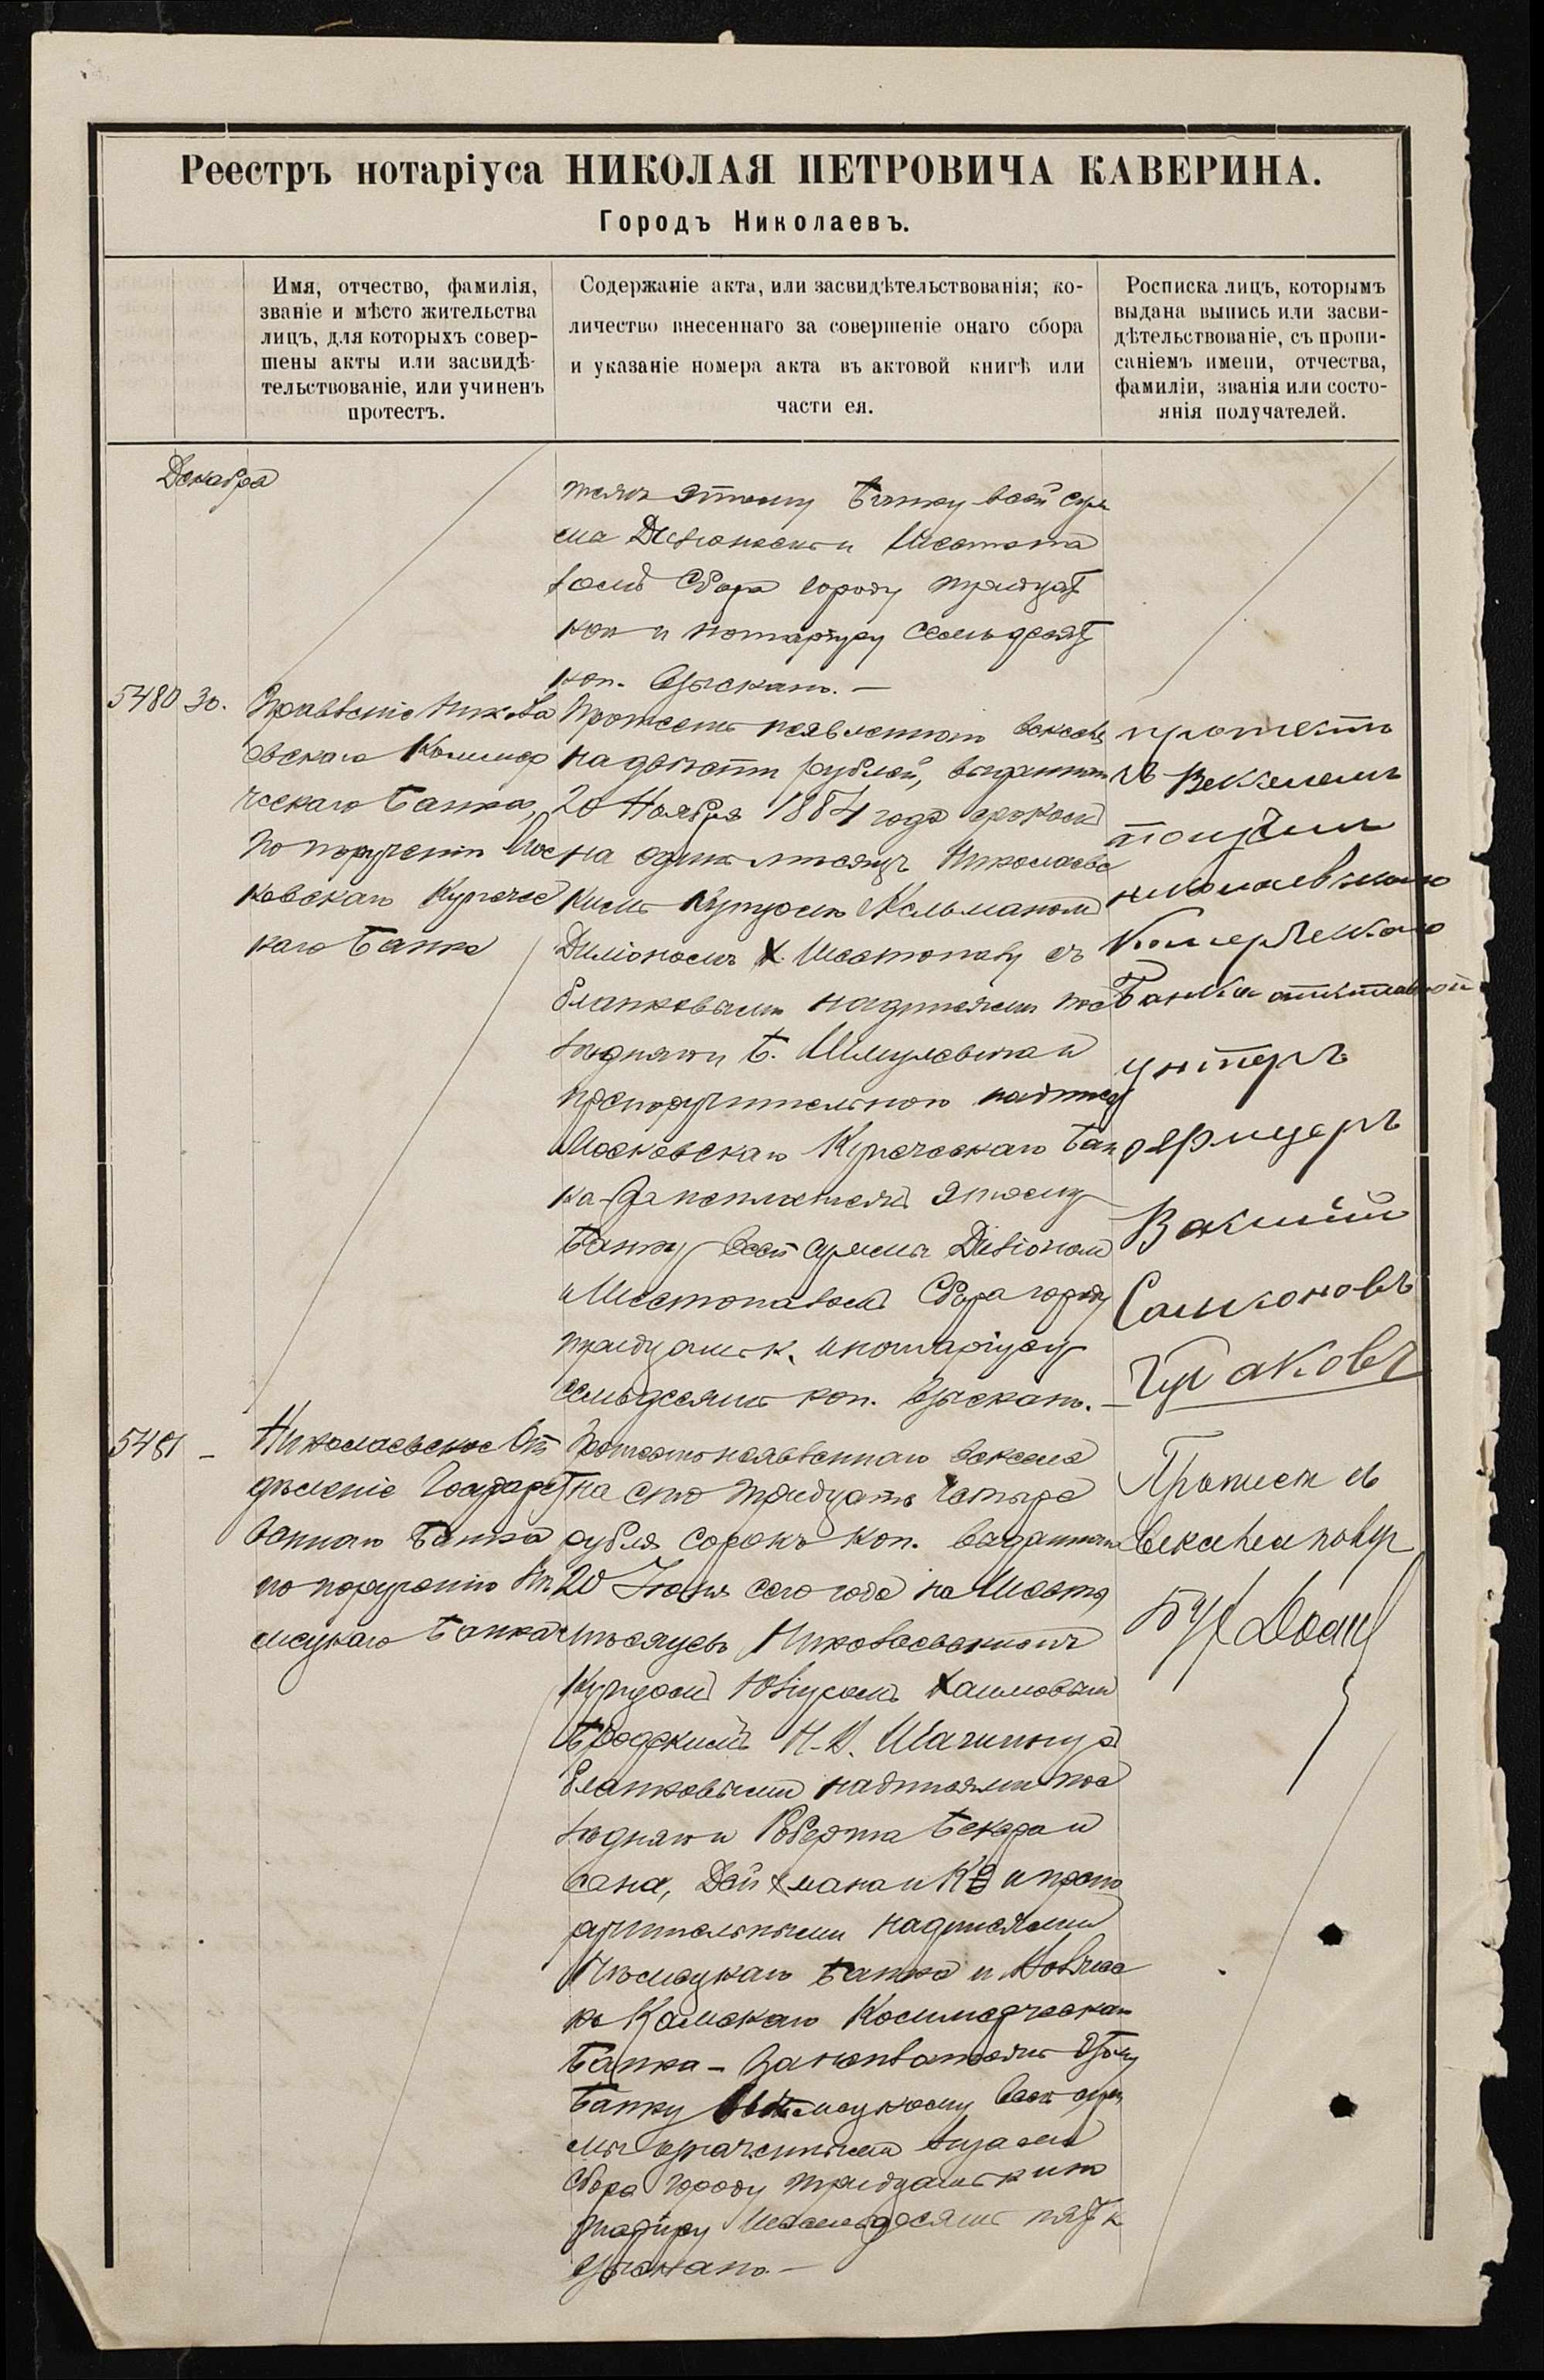 Реестръ нотаріуса НИКОЛАЯ ПЕТРОВИЧА КАВЕРИНА.
Городъ Николаевъ.
Имя, отчество, фамилія,
званіе и мѣсто жительства
лицъ, для которыхъ совер-
шены акты или засвидѣ-
тельствованіе, или учиненъ
протестъ.
Содержаніе акта, или засвидѣтельствованія; ко-
личество внесеннаго за совершеніе онаго сбора
и указаніе номера акта въ актовой книгѣ или
части ея.
Росписка лицъ, которымъ
выдана выпись или засви-
дѣтельствованіе, съ пропи-
саніемъ имени, отчества,
фамиліи, званія или состо-
янія получателей.
Декабря
этому Банку всей сум
Шестопа
Сбора городу тридцать
коп и нотаріусу семьдесятъ
коп. взыскано. —
5480 30.
Правленіе Никола
евскаго Коммер
ческаго Банка,
по порученію Мос
ковскаго Купечес
каго Банка
Протестъ неявленнаго векселя
на двѣсти рублей, выданнаго
20 Ноября 1884 года срокомъ
на одинъ мѣсяцъ Николаевс
кимъ Купцомъ Кельманомъ
Шестопалу съ
бланковыми надписями пос
лѣдняго и Б. Шмулевича и
препоручительною надписью
Московскаго Купеческаго Бан
ка за неплатежъ этому
Банку всей суммы
и Шестопаломъ Сбора городу
тридцать к. и нотаріусу
семьдесятъ коп. взыскано. —
протестъ
съ Векселемъ
получилъ
николаевскаго
Комерческаго
Банка отставной
унтеръ
офицеръ
Самсоновъ
5481 —
Николаевское От
дѣленіе Государст
веннаго Банка
по порученію Нѣ
мецкаго Банка
Протестъ неявленнаго векселя
на сто тридцать четыре
рубля сорокъ коп. выданнаго
20 Іюня сего года на Шесть
мѣсяцевъ Николаевскимъ
Купцомъ Юліусомъ Хаимовымъ
Бродскимъ
бланковыми надписями пос
лѣдняго и Роберта
и К⁰ и препо
ручительными надписями
Нѣмецкаго Банка и Волжс
ко Камскаго Коммерческаго
Банка — за неплатежъ этому
Банку Нѣмецкому всей сум
мы означенными лицами
Сбора городу тридцать к и но
таріусу пять к
взыскано. —
Протестъ съ
векселемъ получ